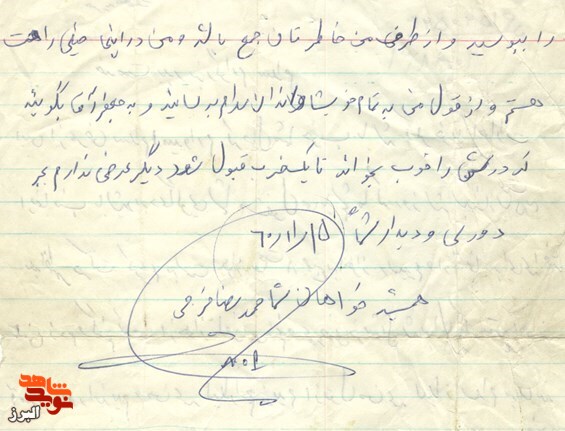 را ببوسید و از طرفی من خاطرتان جمع باشد و من در اینجا خیلی راحت
هستم و از قول من به تمام خویشاوندان سلام برسانید و به جعفر آقا بگویید
که درسش را خوب بخواند تا یکضرب قبول شود دیگر عرضی ندارم بجز
دوری و دیدار شما
همیشه خواهان شما حمید رضا فرجی
شاهد
نوید
البرز